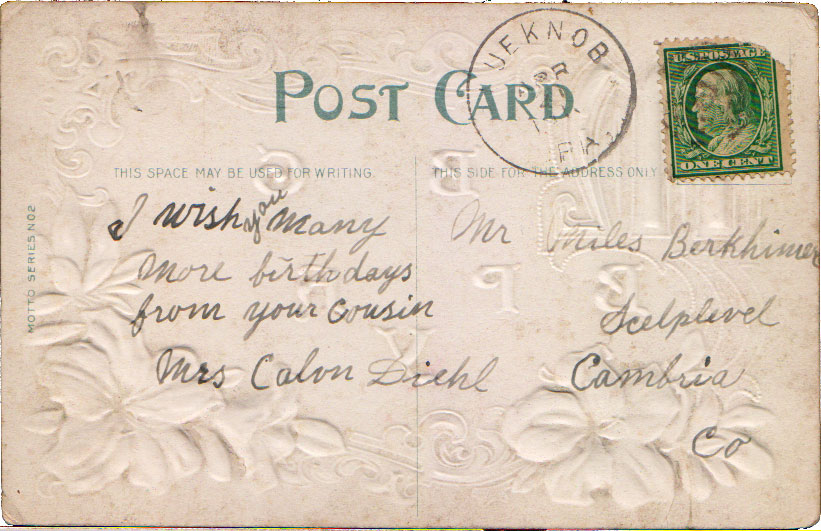 POST CARD
UEKNOB
APR
PA.
U.S. POSTAGE
ONE CENT
THIS SPACE MAY BE USED FOR WRITING.
THIS SIDE FOR THE ADDRESS ONLY
MOTTO SERIES NO2
I wish you many
more birthdays
from your Cousin
Mrs Calvn Diehl
Mr Miles Berkhimer
Scelplevel
Cambria
Co